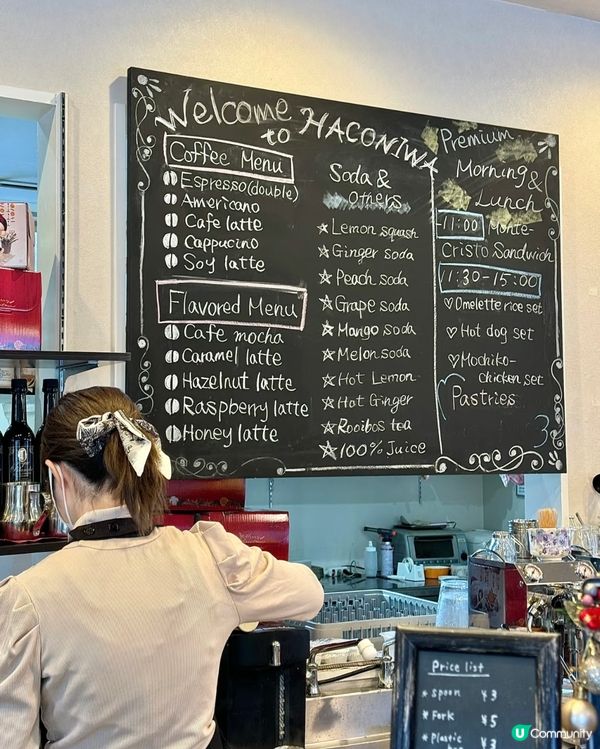 Welcome
to HACONIWA
Coffee Menu
Espresso(double)
Americano
Cafe latte
Cappucino
Soy latte
Flavored Menu
Cafe mocha
Caramel latte
Hazelnut latte
Raspberry latte
Honey latte
Soda &
Others
☆ Lemon squash
☆ Ginger soda
☆ Peach soda
☆ Grape soda
☆ Mango soda
☆ Melon soda
☆ Hot Lemon
☆ Hot Ginger
☆ Rooibos tea
☆ 100% Juice
Premium
Morning &
Lunch
-11:00 Monte-
Cristo Sandwich
11:30-15:00
♡ Omelette rice set
♡ Hot dog set
♡ Mochiko-
chicken set
Pastries
Price list
* Spoon ¥3
* Fork ¥5
* Plastic ¥3
U Community